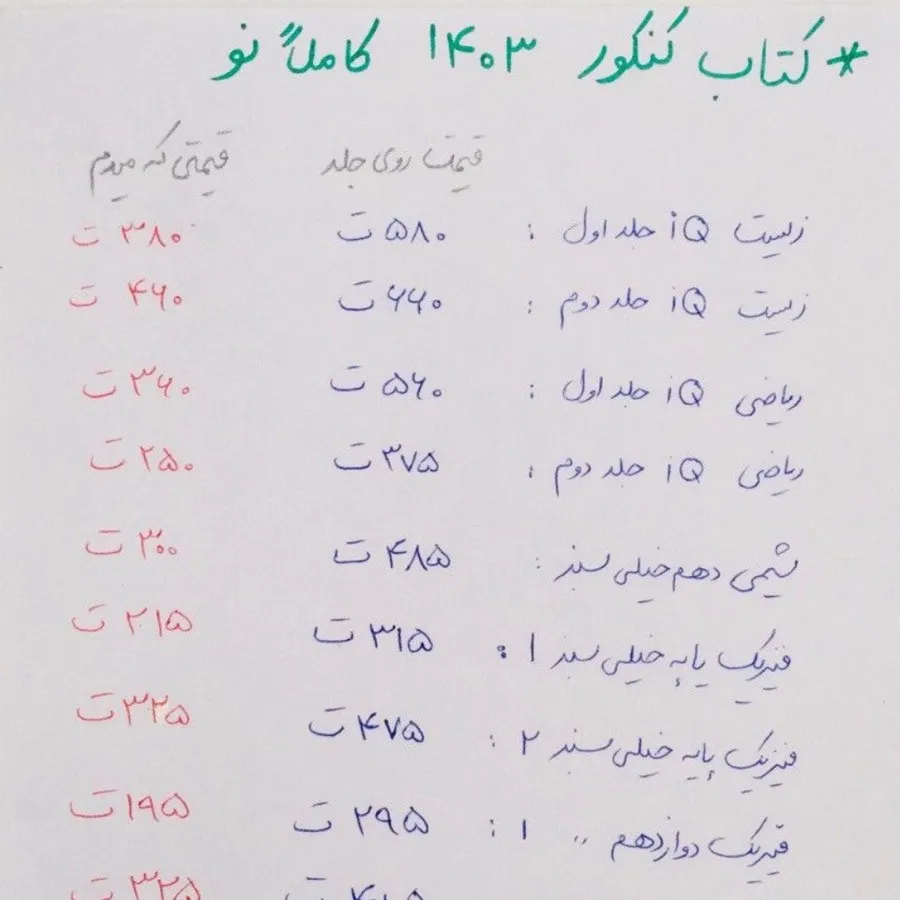 * کتاب کنکور ۱۴۰۳ کاملاً نو
قیمت روی جلد قیمتی که میدم
زیست iQ جلد اول : ۵۸۰ ت ۳۸۰ ت
زیست iQ جلد دوم : ۶۶۰ ت ۴۶۰ ت
ریاضی iQ جلد اول : ۵۶۰ ت ۳۶۰ ت
ریاضی iQ جلد دوم : ۳۷۵ ت ۲۵۰ ت
شیمی دهم خیلی سبز : ۴۸۵ ت ۳۰۰ ت
فیزیک پایه خیلی سبز ۱ : ۳۱۵ ت ۲۱۵ ت
فیزیک پایه خیلی سبز ۲ : ۴۷۵ ت ۳۲۵ ت
فیزیک دوازدهم ,, ۱ : ۲۹۵ ت ۱۹۵ ت
ت ۳۲۵ ت